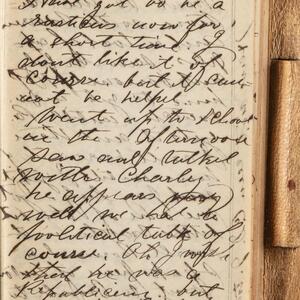 I have got to be a
rusticus now for
a short time I
dont like it of
course. but it can
not be helped
Went up to School
in the Afternoon
Saw and talked
with Charley
he appears very
well we had a
political talk of
course. Oh I wish
that he was a
Republican. but